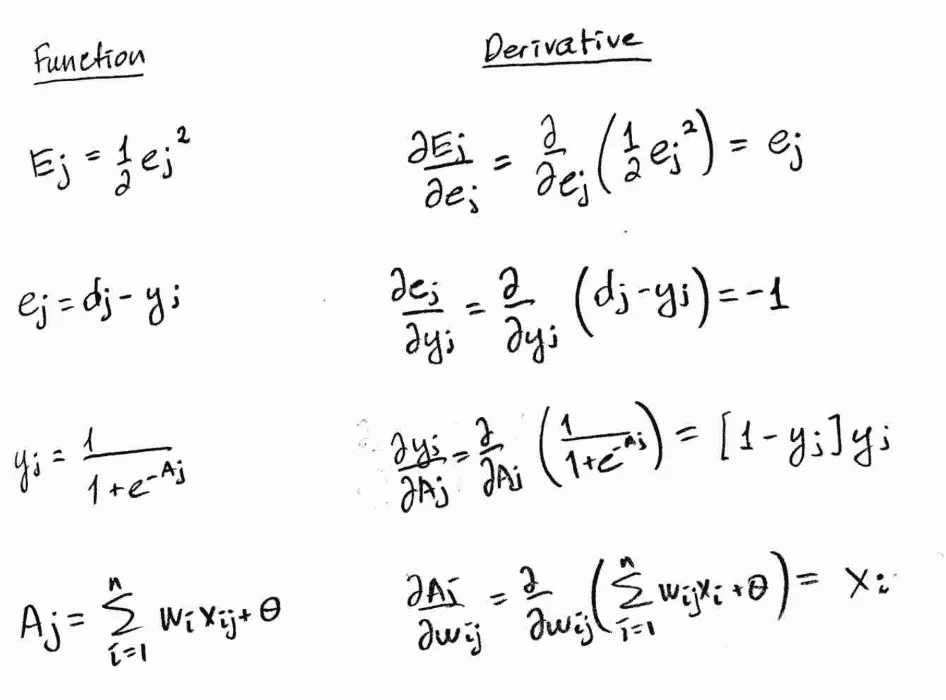 Function Derivative
Eⱼ = 1/2 eⱼ² ∂Eⱼ/∂eⱼ = ∂/∂eⱼ (1/2 eⱼ²) = eⱼ
eⱼ = dⱼ - yⱼ ∂eⱼ/∂yⱼ = ∂/∂yⱼ (dⱼ - yⱼ) = -1
yⱼ = 1/(1 + e^(-Aⱼ)) ∂yⱼ/∂Aⱼ = ∂/∂Aⱼ (1/(1 + e^(-Aⱼ))) = [1 - yⱼ] yⱼ
Aⱼ = Σ_{i=1}^{n} wᵢ xᵢⱼ + θ ∂Aⱼ/∂wᵢⱼ = ∂/∂wᵢⱼ (Σ_{i=1}^{n} wᵢⱼ xᵢ + θ) = xᵢ